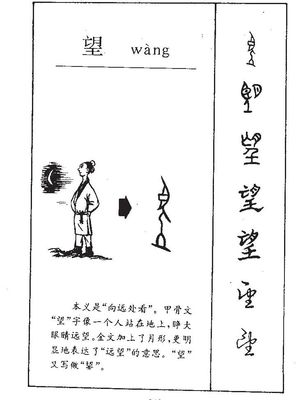 望 wàng
本义是“向远处看”。甲骨文
“望”字像一个人站在地上，睁大
眼睛远望。金文加上了月形，更明
显地表达了“远望”的意思。“望”
又写做“朢”。
望
望